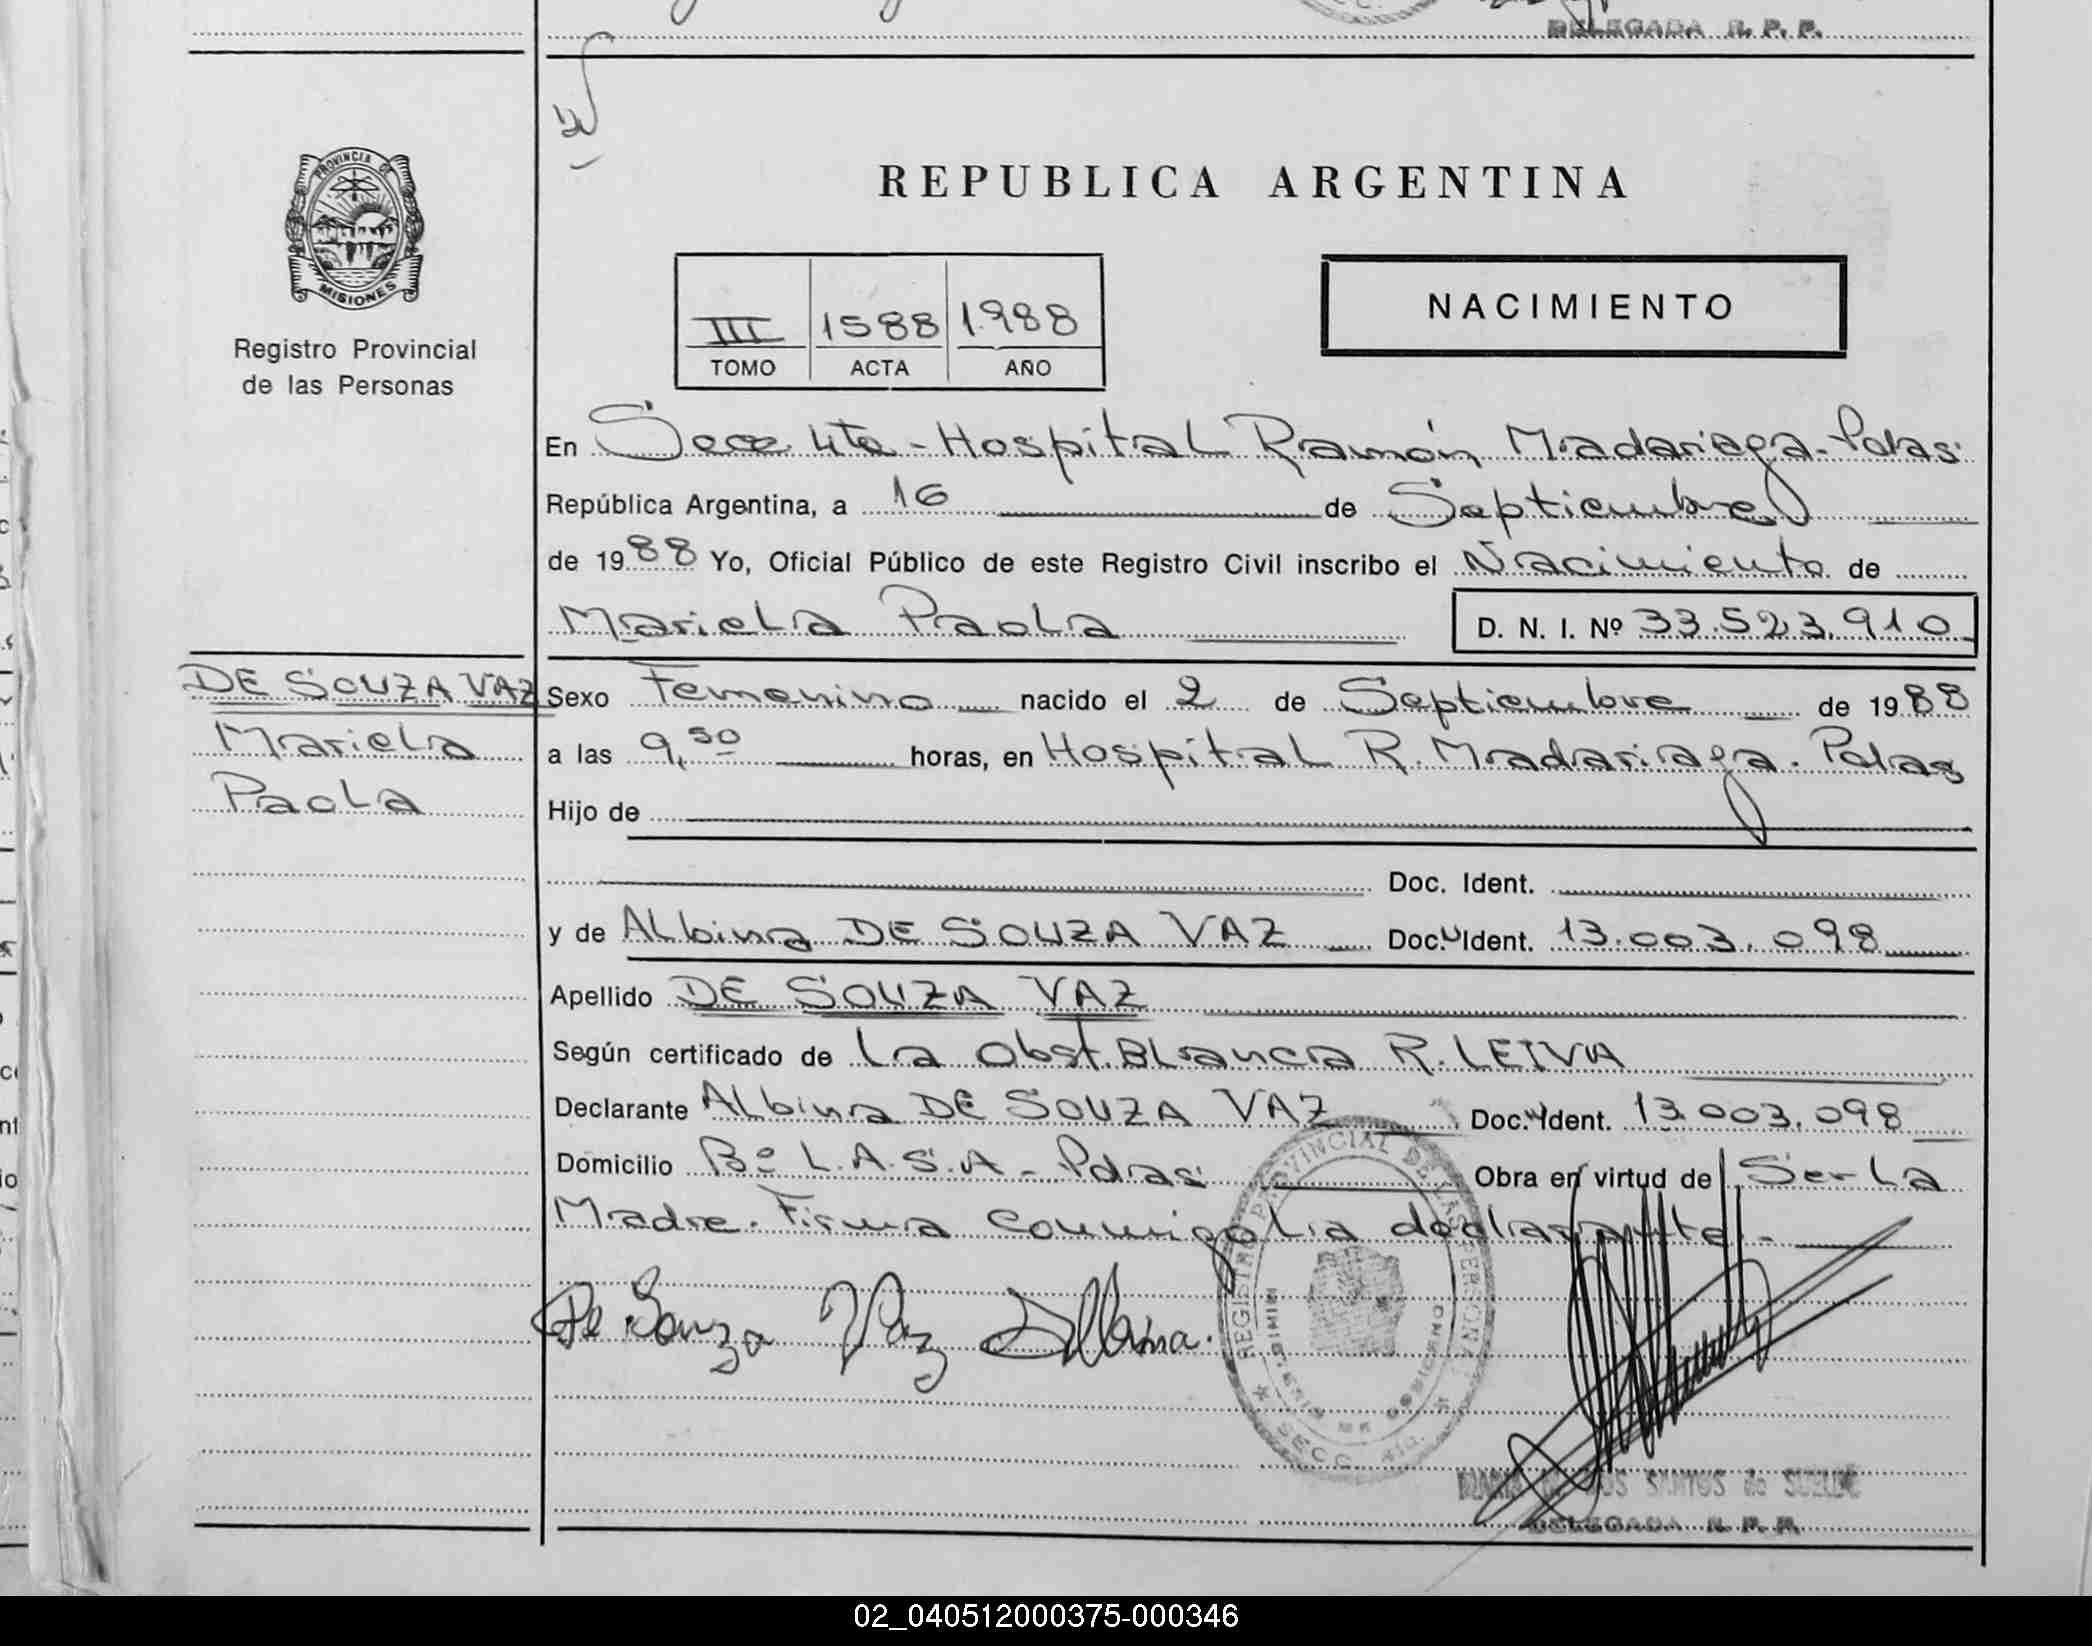 DELEGADA R. P. P.
PROVINCIA DE
MISIONES
Registro Provincial
de las Personas
REPUBLICA ARGENTINA
III 1588 1988
TOMO ACTA AÑO
NACIMIENTO
En Secc 4ta - Hospital Ramón Madariaga - Pdas
República Argentina, a 16 de Septiembre
de 1988 Yo, Oficial Público de este Registro Civil inscribo el Nacimiento de
Mariela Paola D. N. I. Nº 33.523.910
DE SOUZA VAZ
Mariela
Paola
Sexo Femenino nacido el 2 de Septiembre de 1988
a las 9,50 horas, en Hospital R. Madariaga. Pdas
Hijo de
Doc. Ident.
y de Albina DE SOUZA VAZ Doc. Ident. 13.003.098
Apellido DE SOUZA VAZ
Según certificado de la Obst. Blanca R. LEIVA
Declarante Albina DE SOUZA VAZ Doc. Ident. 13.003.098
Domicilio Bº L.A.S.A - Pdas Obra en virtud de Ser la
Madre. Firma conmigo la declarante.-
De Souza Vaz Albina.
REGISTRO PROVINCIAL DE LAS PERSONAS
SECC. 4ta.
DOS SANTOS de
DELEGADA R. P. P.
02_040512000375-000346